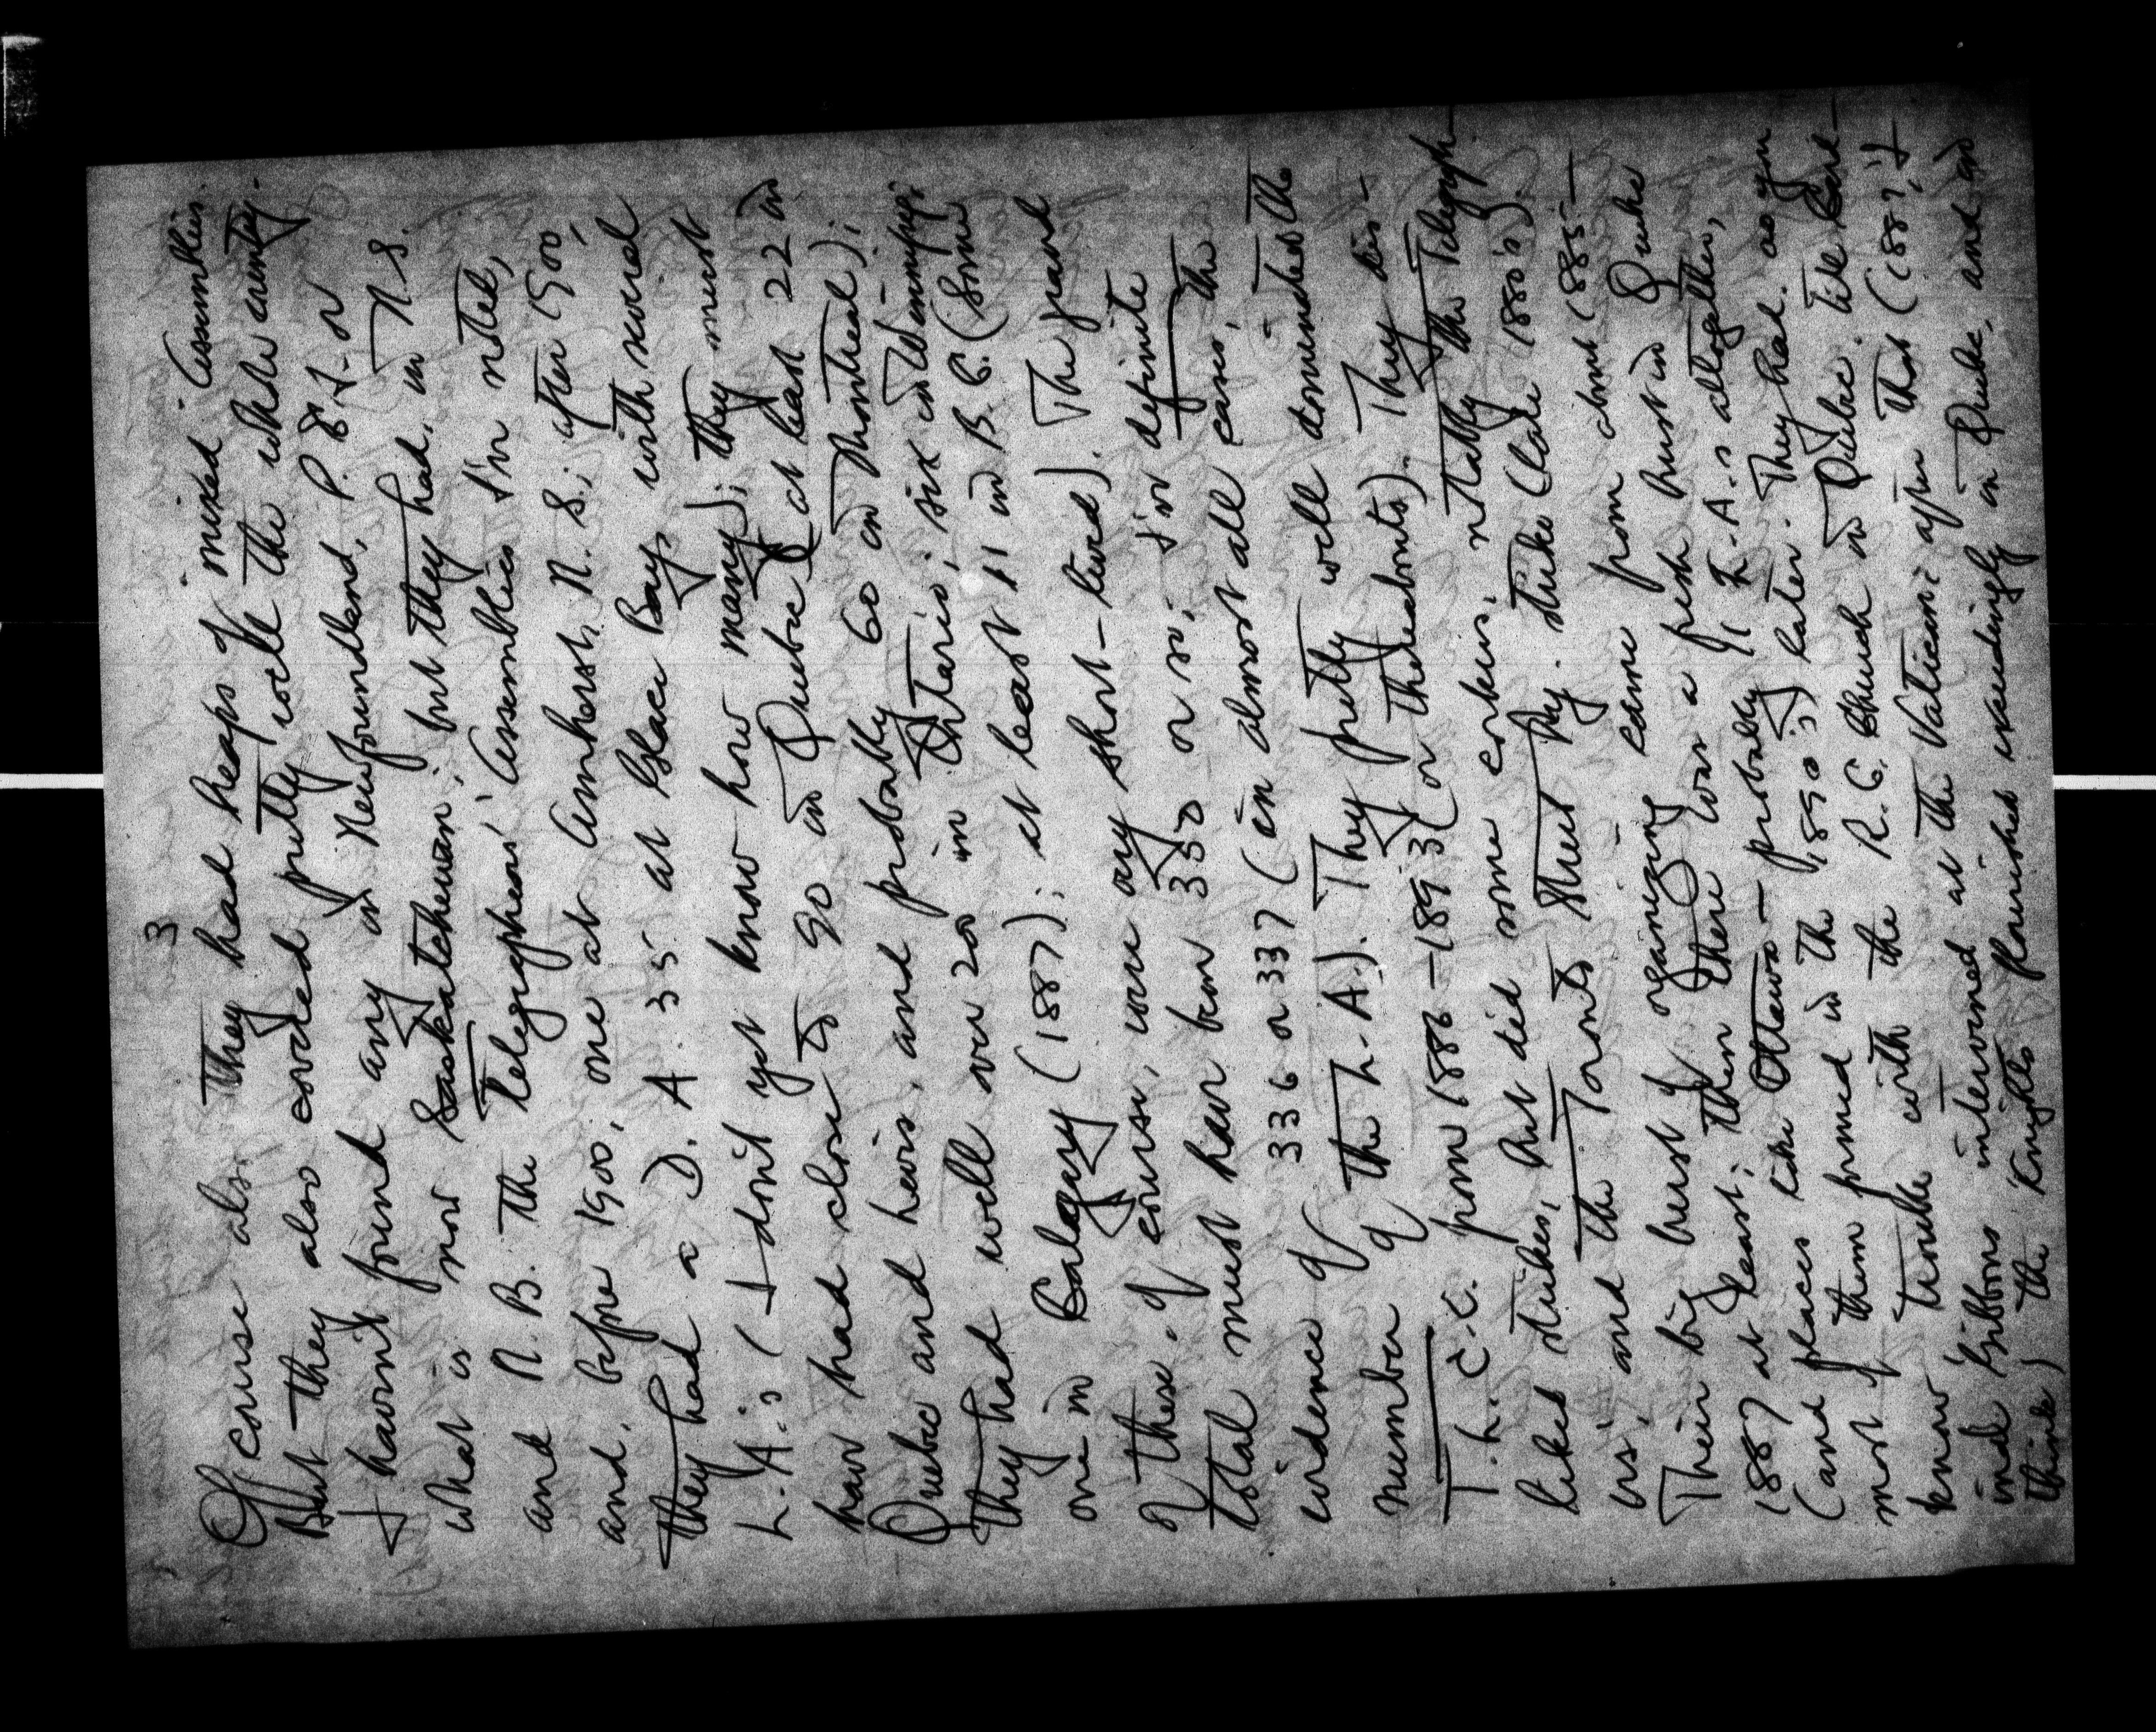 3
Of course also they had heaps of mixed Assemblies.
But they also covered pretty well the whole country.
I haven't found any in Newfoundland, P.E.I. or
what is now Saskatchewan; but they had, in N.S.
and N.B. the Telegraphers' Assemblies I've noted,
and, before 1900, one at Amherst, N.S.; after 1900,
they had a D.A. 35 at Glace Bay, with several
L.A.'s (I don't yet know how many); they must
have had close to 90 in Quebec (at least 22 in
Quebec and Levis, and probably 60 in Montreal);
they had well over 200 in Ontario; six in Winnipeg;
one in Calgary (1887); at least 11 in B.C. (some
of these, of course, were very short-lived). The grand
total must have been 350 or so; I've definite
evidence of 336 or 337 (in almost all cases, the
number of the L.A.). They pretty well dominated the
T.L.C.C. from 1886–1893 (or thereabouts). They dis-
liked strikes, but did some corkers, notably the Telegraph-
ers', and the Toronto Street Ry. strike (late 1880's).
Their big burst of organizing came from about 1885–
1887 at least; then there was a fresh burst in Quebec
(and places like Ottawa – probably 91 L.A.'s altogether,
most of them formed in the 1890's) later. They had, as you
know, trouble with the R.C. Church in Quebec, till Card-
inal Gibbons intervened at the Vatican; after that (188?, I
think) the Knights flourished exceedingly in Quebec, and in